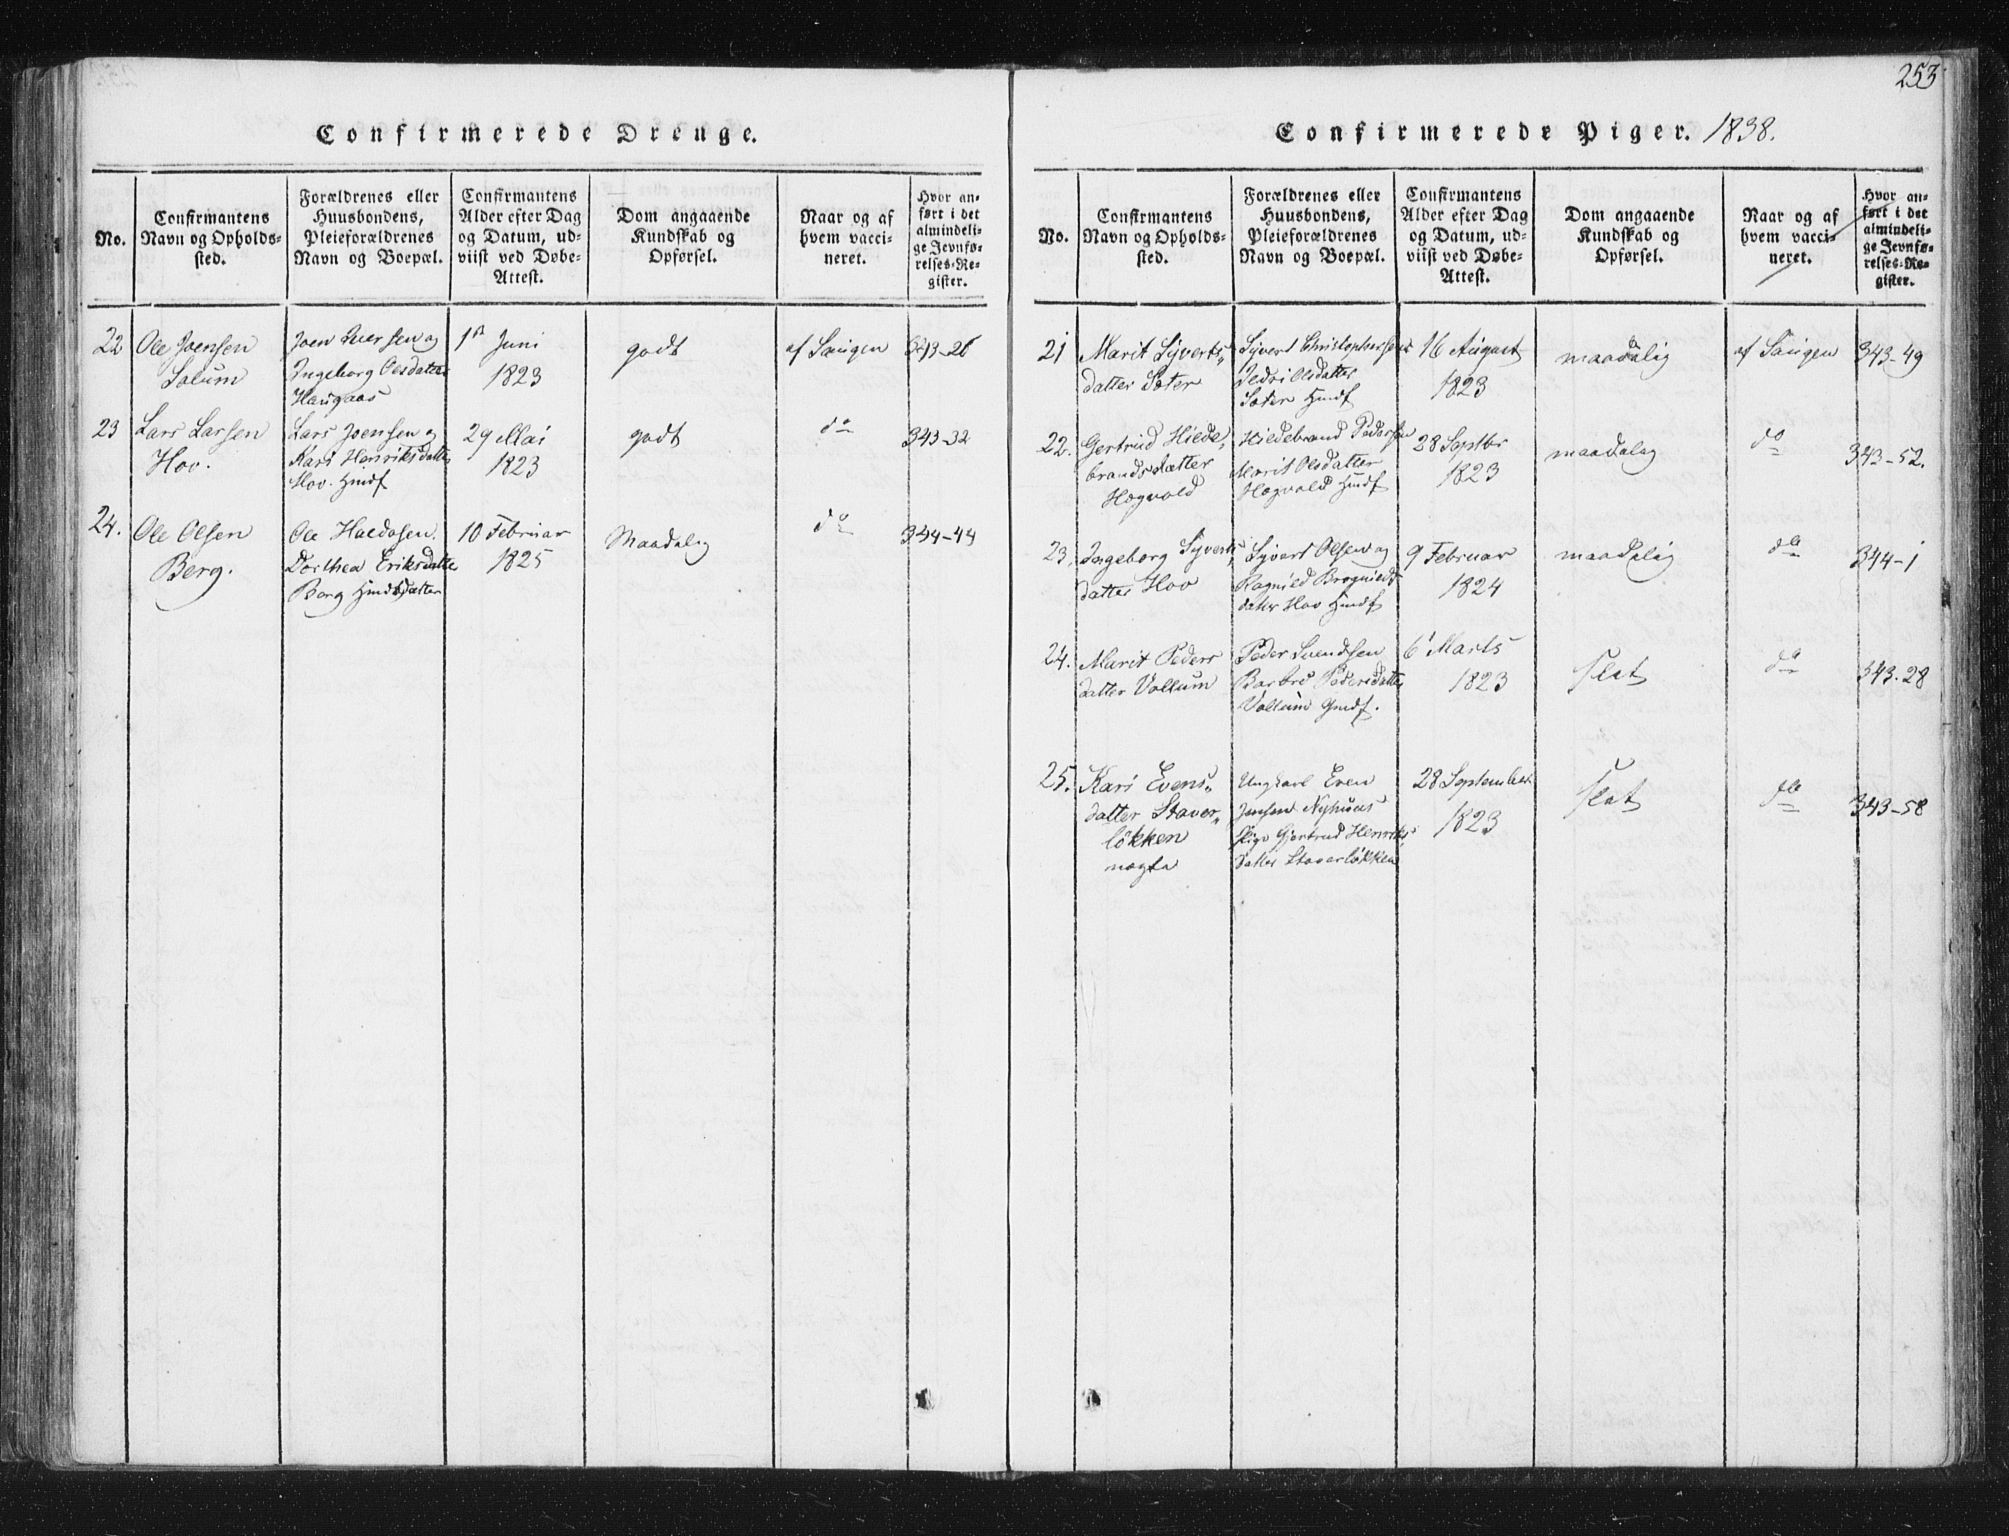 253
Confirmerede Drenge.
No.
Confirmantens
Navn og Opholds-
sted.
Forældrenes eller
Huusbondens,
Pleieforældrenes
Navn og Boepæl.
Confirmantens
Alder efter Dag
og Datum, ud-
viist ved Døbe-
Attest.
Dom angaaende
Kundskab og
Opførsel.
Naar og af
hvem vacci-
neret.
Hvor an-
ført i det
almindeli-
ge Jevnfø-
relses-Re-
gister.
22
Ole Joensen
Solum
Joen Iversen og
Ingeborg Olsdatter
Haugaas
1st Juni
1823
godt
af Saugen
343-26
23
Lars Larsen
Hov.
Lars Joensen og
Kari Henriksdatter
Hov. Hmdf
29 Mai
1823
godt
do
343-32
24.
Ole Olsen
Berg.
Ole Haldosen
Dorthea Eriksdatter
Berg
10 Februar
1825
Maadelig
do
344-44
Confirmerede Piger. 1838.
No.
Confirmantens
Navn og Opholds-
sted.
Forældrenes eller
Huusbondens,
Pleieforældrenes
Navn og Boepæl.
Confirmantens
Alder efter Dag
og Datum, ud-
viist ved Døbe-
Attest.
Dom angaaende
Kundskab og
Opførsel.
Naar og af
hvem vacci-
neret.
Hvor an-
ført i det
almindeli-
ge Jevnfø-
relses-Re-
gister.
21
Marit Syverts„
datter Sæter
Syvert Christophersen
Olsdatter
Sæter Hmdf
16 August
1823
maadelig
af Saugen
343-49
22.
Gertrud Hilde„
brandsdatter
Hogvold
Hildebrand Pedersen
Marit Olsdatter
Hogvold Hmdf
28 Septbr
1823
maadelig
do
343-52.
23.
Ingeborg Syverts„
datter Hov
Syvert Olsen og
Ragnild Brynilds
datter Hov Hmdf
9 Februar
1824
maadelig
do
344-1
24.
Marit Peders
datter Vollum
Peder Svendsen
Barbro Pedersdatter
Vollum Gmdf.
6 Marts
1823
slet
do
343.28
25.
Kari Evens„
datter Staver„
løkken
uægte
Ungkarl Even
Jensen Nyhuus
Pige Gjertrud Henriks
datter Staverløkken
28 September
1823
slet
do
343-58